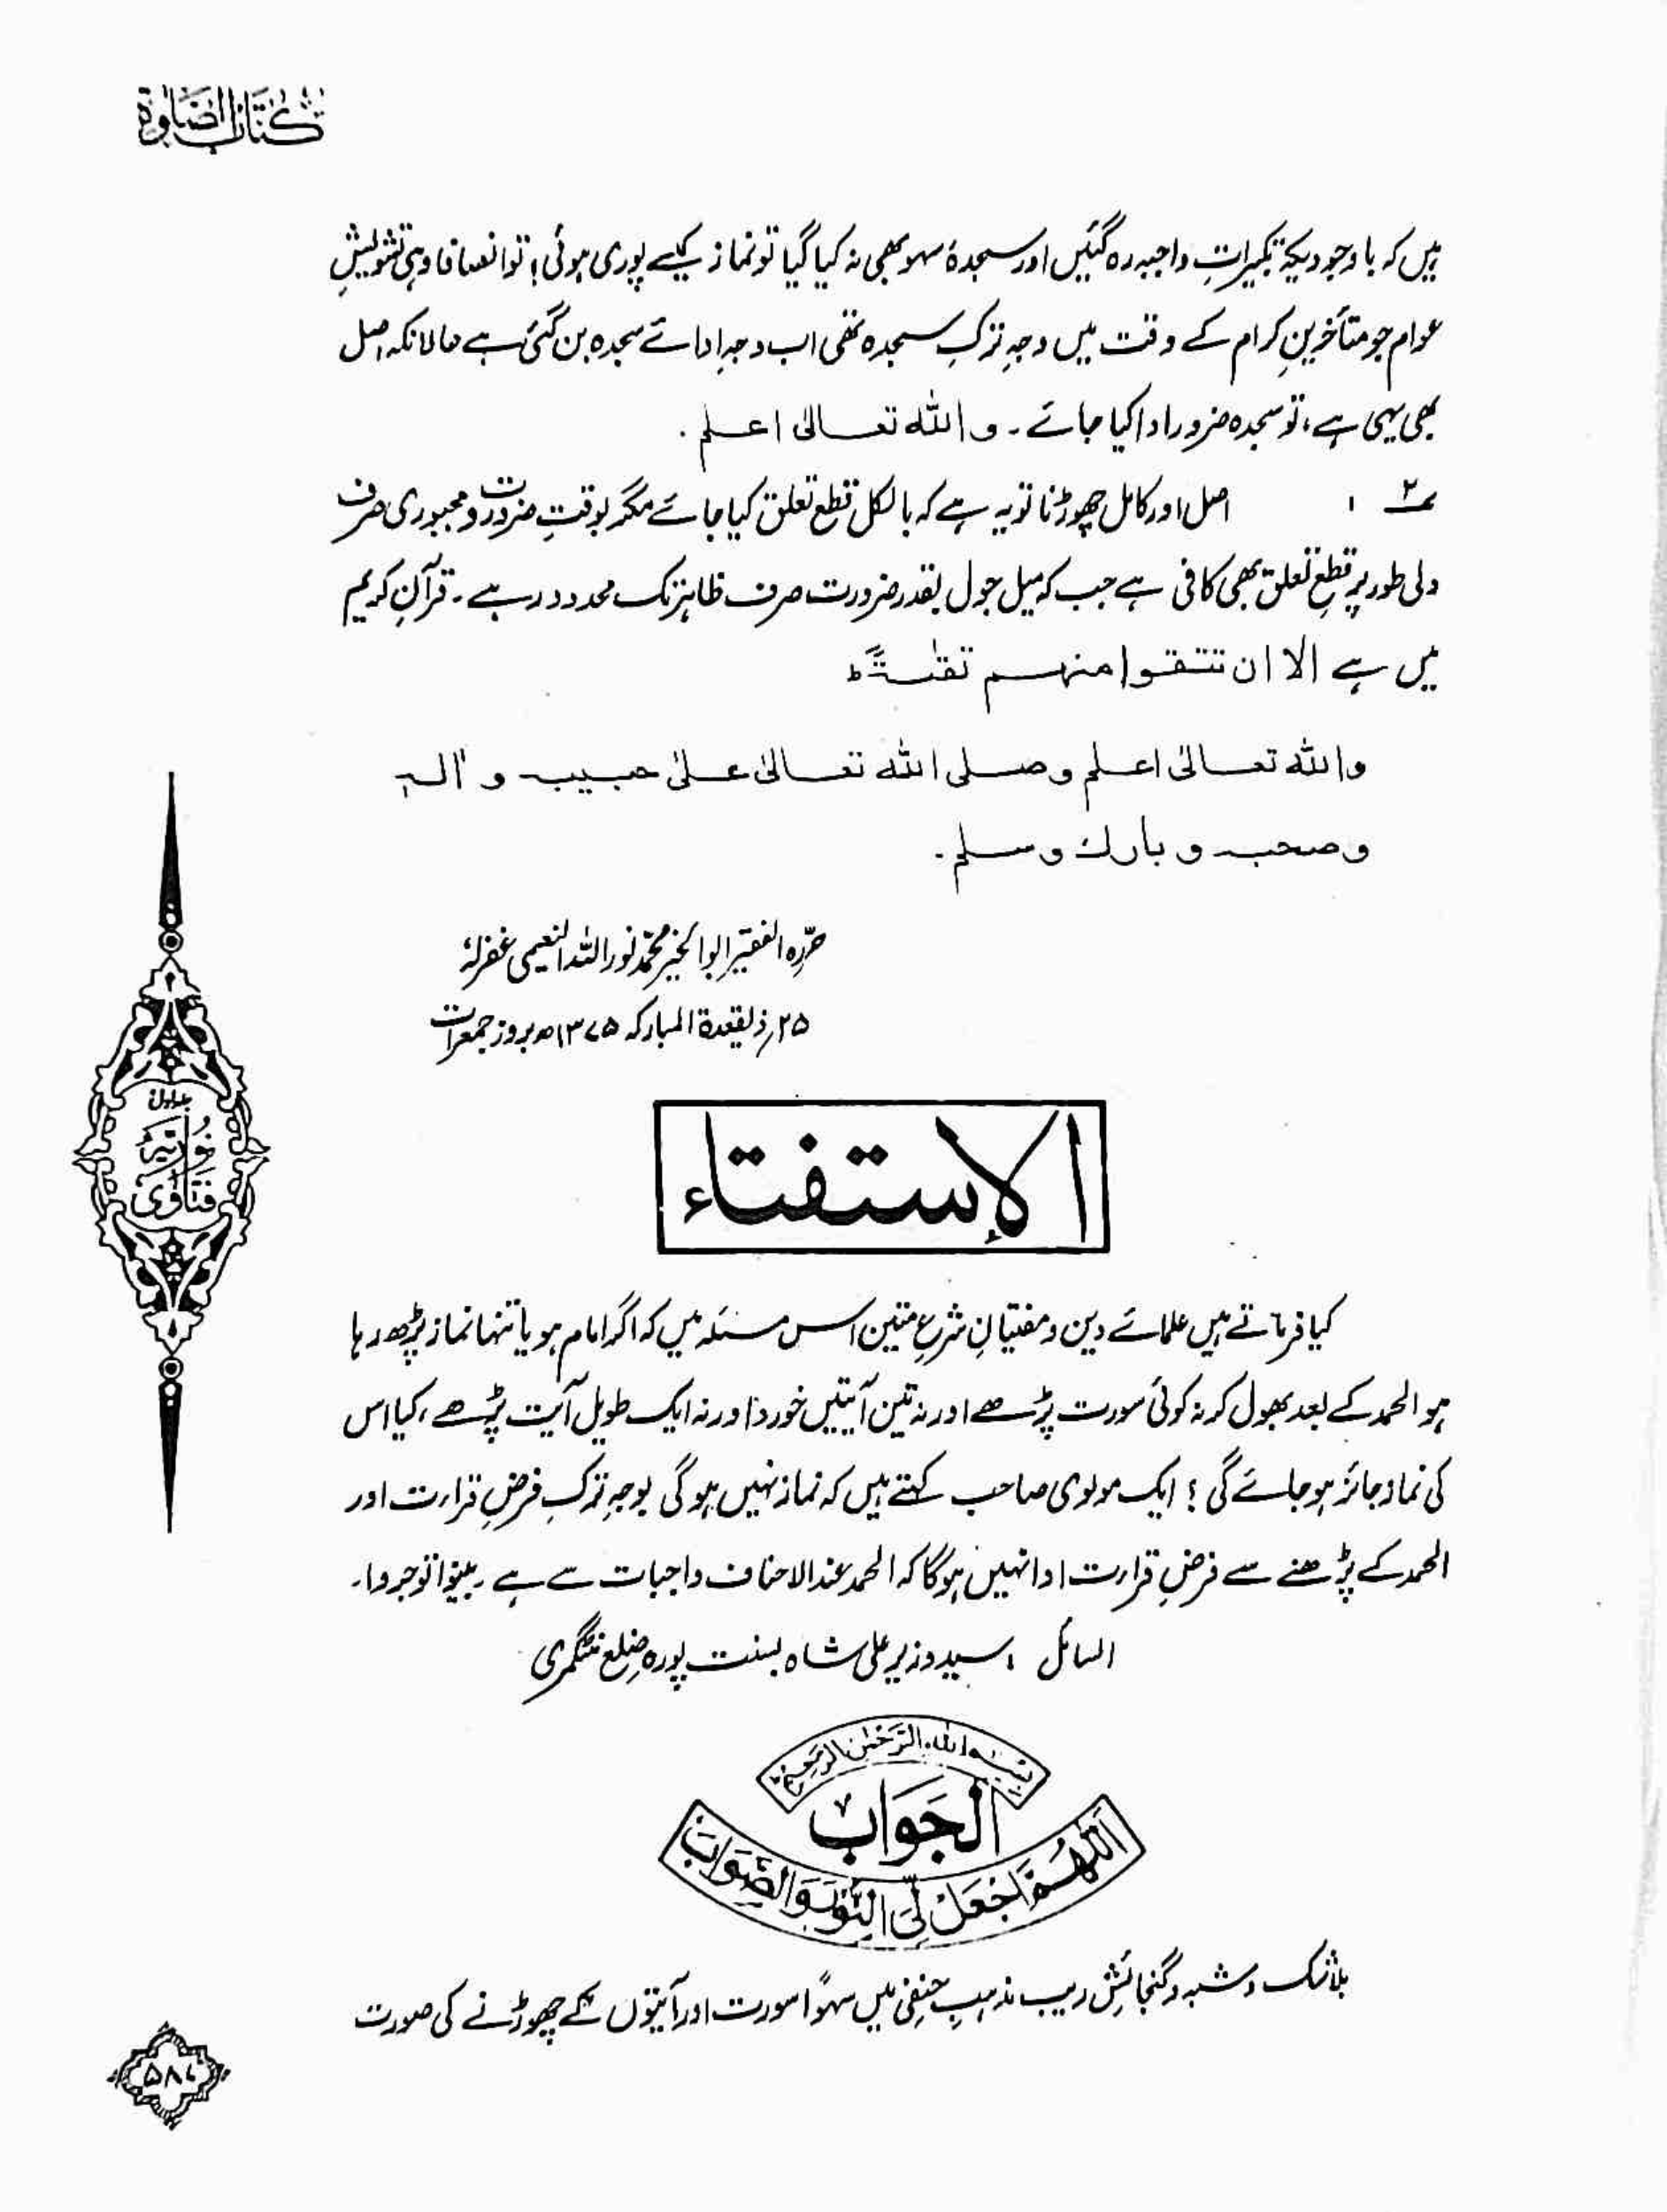 كتاب الصلوة
ہیں کہ باوجودیکہ تکبیراتِ واجبہ رہ گئیں اور سجدۂ سہو بھی نہ کیا گیا تو نماز کیسے پوری ہوئی؟ تو انصافا وہی تشویشِ
عوام جو متأخرینِ کرام کے وقت میں وجہِ ترکِ سجدہ تھی اب وجہِ ادائے سجدہ بن گئی ہے حالانکہ اصل
بھی یہی ہے، تو سجدہ ضرور ادا کیا جائے۔ واللہ تعالیٰ اعلم۔
۲ : اصل اور کامل چھوڑنا تو یہ ہے کہ بالکل قطع تعلق کیا جائے مگر بوقتِ ضرورت و مجبوری صرف
دلی طور پر قطعِ تعلق بھی کافی ہے جب کہ میل جول بقدرِ ضرورت صرف ظاہر تک محدود رہے۔ قرآنِ کریم
میں ہے الا ان تتقوا منہم تقٰىۃً ط
واللہ تعالیٰ اعلم وصلی اللہ تعالیٰ علیٰ حبیبہ و اٰلہ
وصحبہ و بارك وسلم۔
حرّرہ الفقیر ابوالخیر محمّد نور اللہ النعیمی غفرلہٗ
۲۵؍ذلقعدۃ المبارکہ ۱۳۷۵ھ بروز جمعرات
الإستفتاء
کیا فرماتے ہیں علمائے دین و مفتیانِ شرعِ متین اس مسئلہ میں کہ اگر امام ہو یا تنہا نماز پڑھ رہا
ہو الحمد کے بعد بھول کر نہ کوئی سورت پڑھے اور نہ تین آیتیں خورد اور نہ ایک طویل آیت پڑھے، کیا اس
کی نماز جائز ہو جائے گی؟ ایک مولوی صاحب کہتے ہیں کہ نماز نہیں ہوگی بوجہِ ترکِ فرضِ قراءت اور
الحمد کے پڑھنے سے فرضِ قراءت ادا نہیں ہوگا کہ الحمد عند الاحناف واجبات سے ہے۔ بیّنوا توجروا۔
السائل : سید وزیر علی شاہ بسنت پورہ ضلع منٹگمری
بسم الله الرحمن الرحيم
الجَوَاب
اَللّٰهُمَّ اجْعَلْ لِّيَ النُّوْرَ وَالصَّوَابَ
بلاشک و شبہ و گنجائشِ ریب مذہبِ حنفی میں سہوًا سورت اور آیتوں کے چھوڑنے کی صورت
جلد اول
نوریہ
فتاوی
۵۸۷